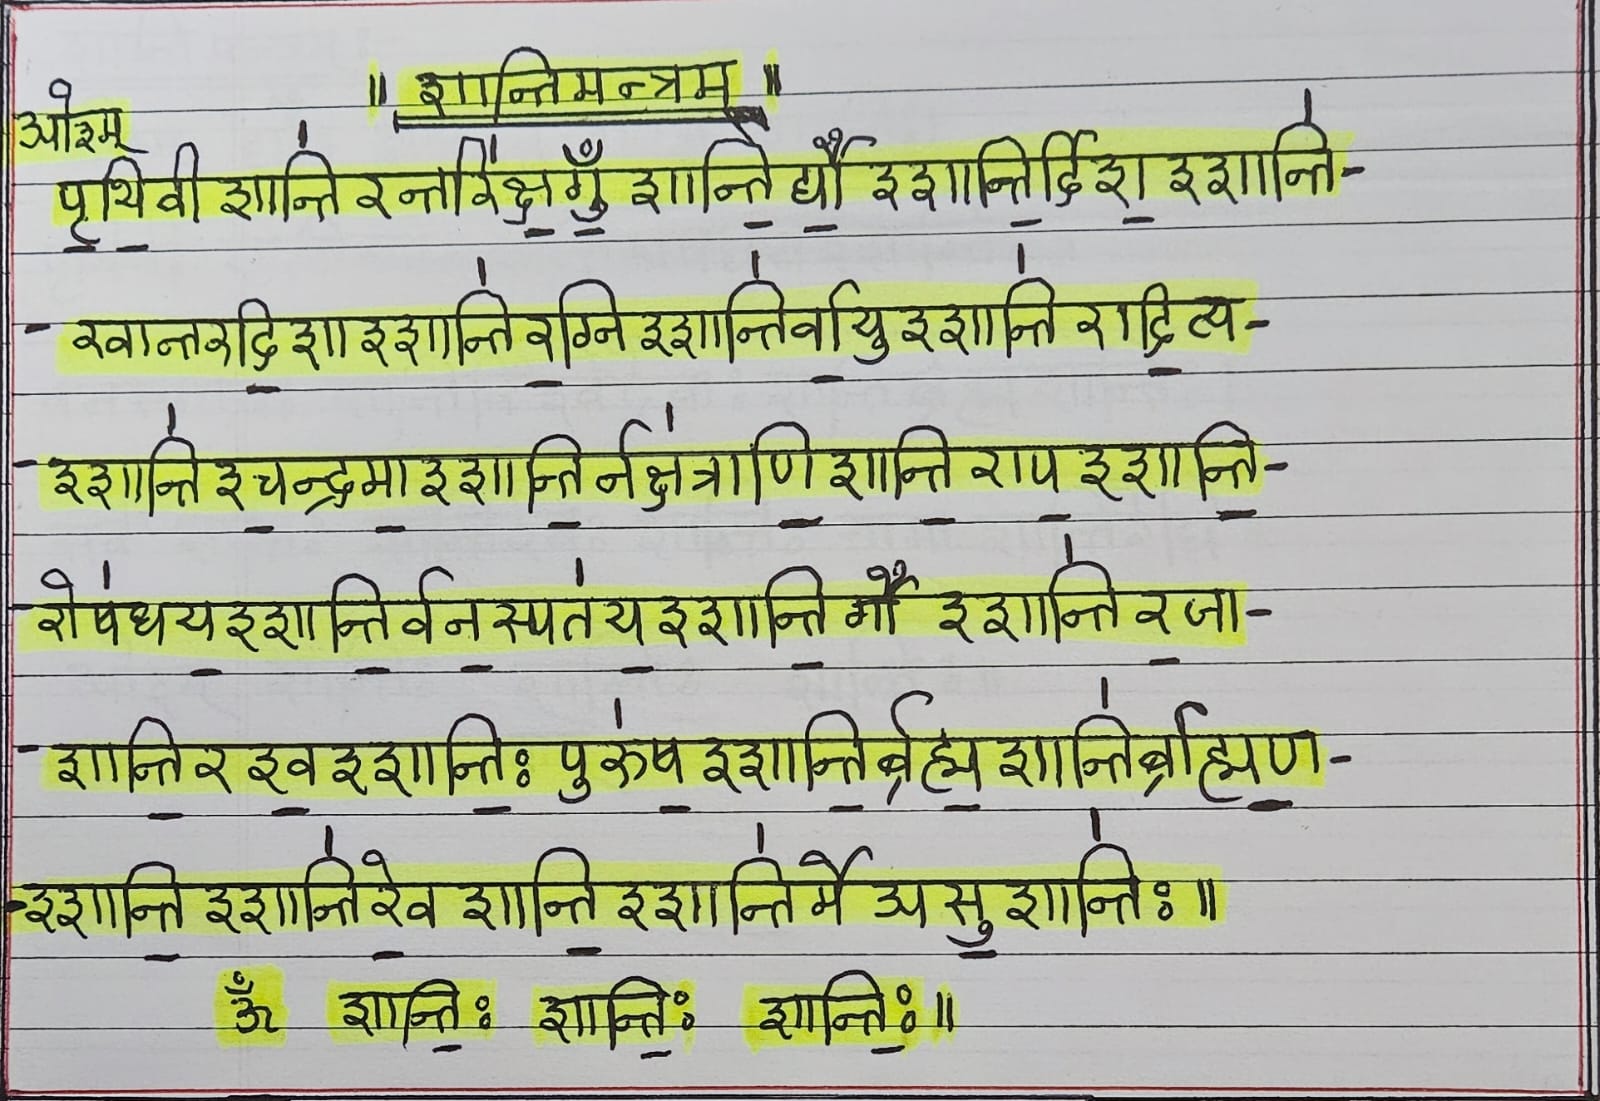 ॥ शान्तिमन्त्रम् ॥
ओ३म्
पृ॒थि॒वी शान्ति॑ रन्तरि॑क्ष॒गुँ॒ शान्ति॒ र्द्यौ॒ श्शान्ति॒र्दि श॒ श्शान्ति॑-
- रवान्तरदि॒शा श्शान्ति॑ र॒ग्नि श्शान्ति॑र्वा॒यु श्शान्ति॑ रादि॒त्य-
- श्शान्ति॑ श्च॒न्द्रमा॒ श्शान्ति॒ र्नक्ष॑त्राणि॒ शान्ति॒ राप॒ श्शान्ति॒-
- रोष॑धय॒श्शान्ति॒र्वन॒स्पत॑य॒श्शान्ति॒ र्गौ श्शान्ति॑ र॒जा-
- शान्ति॒ रश्व॒श्शान्तिः॒ पुरु॑ष॒ श्शान्ति॒र्ब्रह्म॒ शान्ति॑र्ब्राह्मण॒-
- श्शान्ति॒ श्शान्ति॑ रे॒व शान्ति॒ श्शान्ति॑र्मे असु॒ शान्तिः॑॥
ॐ शान्तिः॒ शान्तिः॒ शान्तिः॒॥